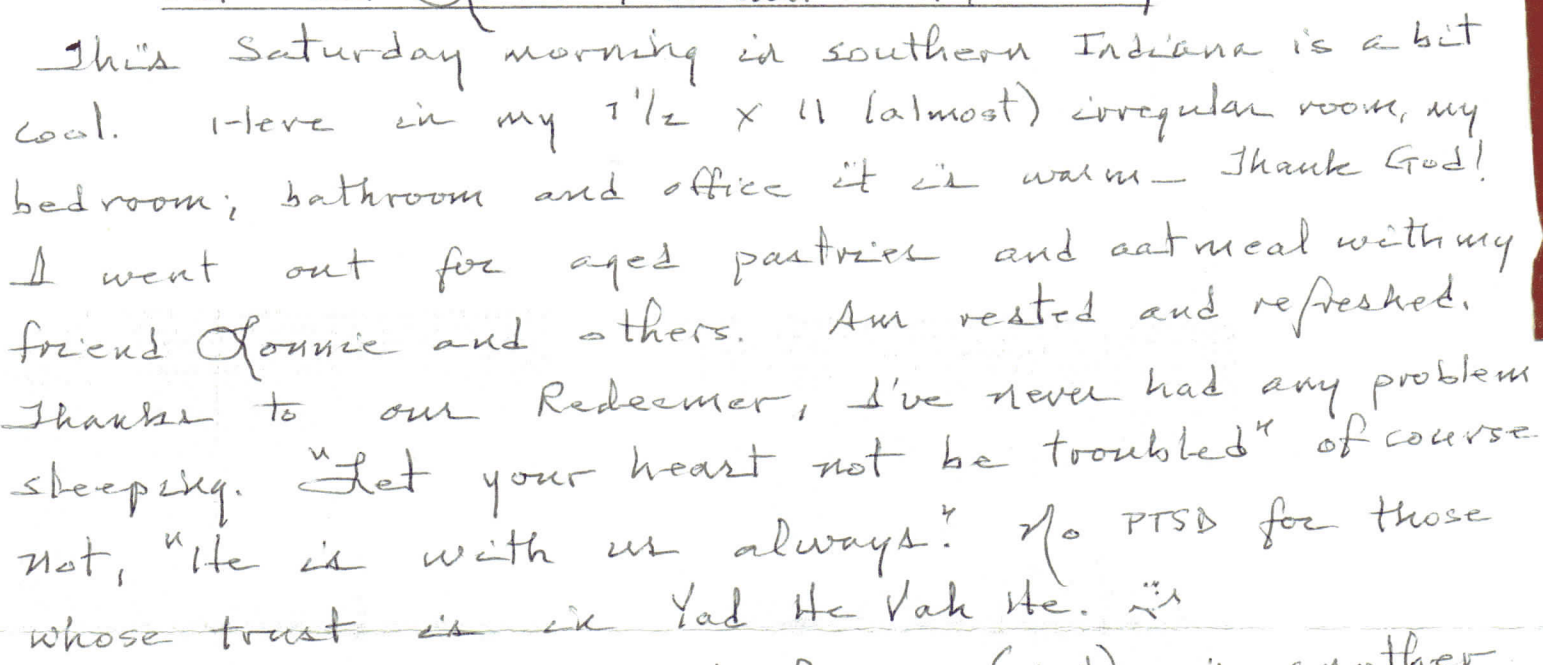 This Saturday morning in southern Indiana is a bit
cool. Here in my 7 1/2 x 11 (almost) irregular room, my
bedroom; bathroom and office it is warm – Thank God!
I went out for aged pastries and oatmeal with my
friend Lonnie and others. Am rested and refreshed.
Thanks to our Redeemer, I've never had any problem
sleeping. "Let your heart not be troubled" of course
not, "He is with us always". No PTSD for those
whose trust is in Yad He Vah He.